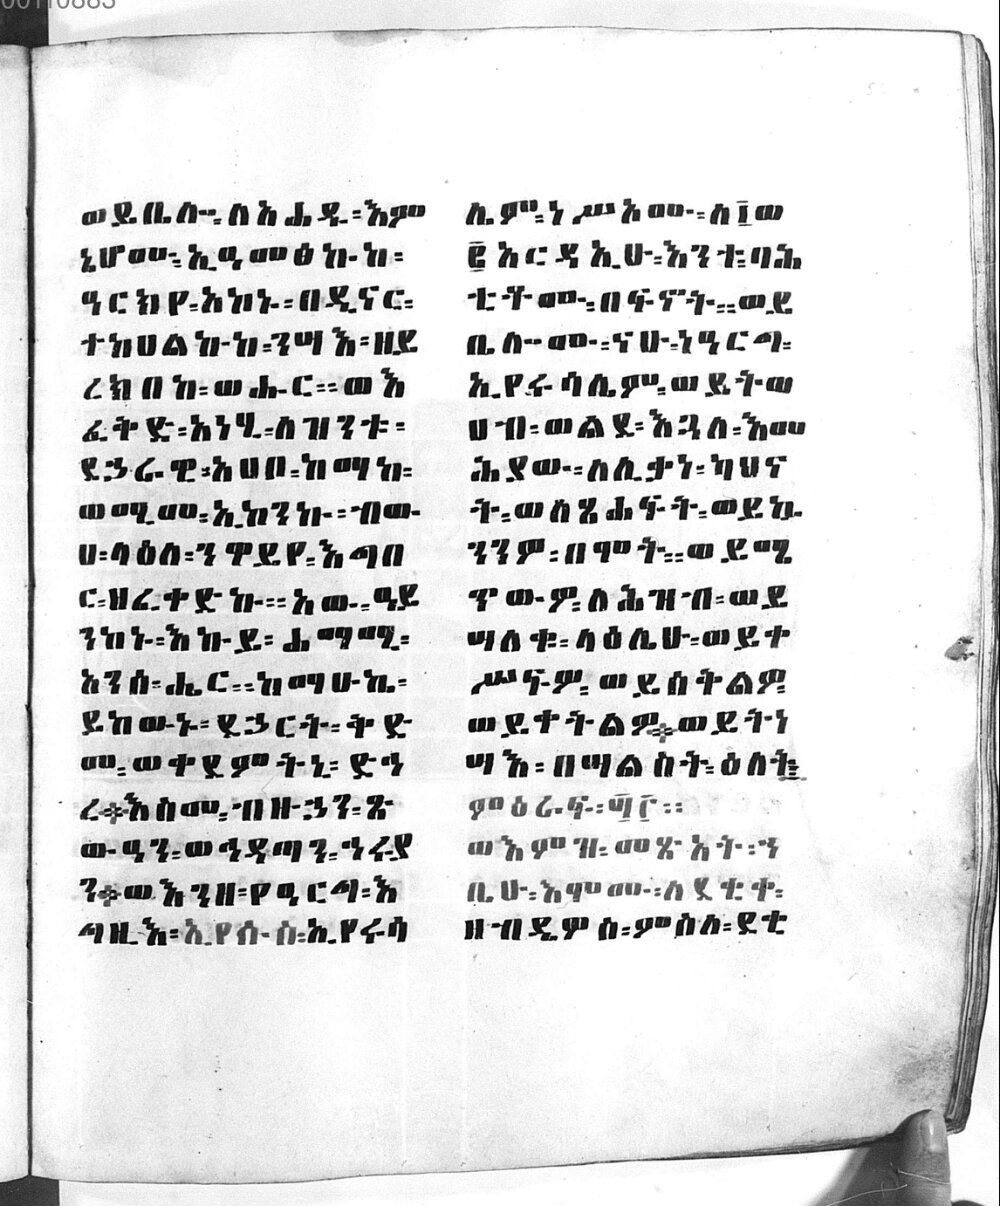 ወይቤሎሙ፡ለአሐዱ፡እም
ኔሆሙ፡ኢዔመፅኩከ፡
ዓርክየ፡አኮኑ፡በዲናር፡
ተከሀልኩከ፡ንሣእ፡ዘይ
ረክበከ፡ወሑር፡፡ወእ
ፈቅድ፡አነሂ፡ለዝንቱ፡
ደኃራዊ፡አሀቦ፡ከማከ፡
ወሚመ፡ኢከንኩ፡ብው
ሀ፡ላዕለ፡ንዋይየ፡እግበ
ር፡ዘፈቀድኩ፡፡አው፡ዓይ
ንከኑ፡እኩይ፡ሐማሚ፡
አንሰ፡ሔር፡፡ከማሁኬ፡
ይከውኑ፡ደኃርት፡ቅድ
መ፡ወቀደምትኒ፡ድኅ
ረ፨እስመ፡ብዙኃን፡ጽ
ውዓን፡ወኅዳጣን፡ኅሩያ
ን፨ወእንዘ፡የዓርግ፡እ
ግዚእ፡ኢየሱስ፡ኢየሩሳ
ሌም፡ነሥአሙ፡ለ፲ወ
፪አርዳኢሁ፡እንተ፡ባሕ
ቲቶሙ፡በፍኖት፡፡ወይ
ቤሎሙ፡ናሁ፡ነዓርግ፡
ኢየሩሳሌም፡ወይትወ
ሀብ፡ወልደ፡እጓለ፡እመ
ሕያው፡ለሊቃነ፡ካህና
ት፡ወለጸሐፍት፡ወይኴ
ንንዎ፡በሞት፡፡ወይሜ
ጥውዎ፡ለሕዝብ፡ወይ
ሣለቁ፡ላዕሌሁ፡ወይቀ
ሥፍዎ፡ወይሰቅልዎ፡
ወይቀትልዎ፨ወይትነ
ሣእ፡በሣልስት፡ዕለት፡
ምዕራፍ፡፡
ወእምዝ፡መጽአት፡ኀ
ቤሁ፡እሞሙ፡ለደቂቀ፡
ዘብዴዎስ፡ምስለ፡ደቂ